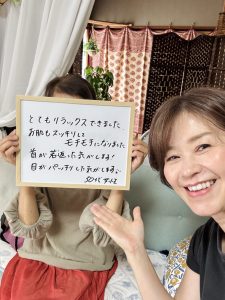 とてもリラックスできました
お肌もスッキリして
モチモチになりました
首が若返った気がします!
目がパッチリした気がします。
50代